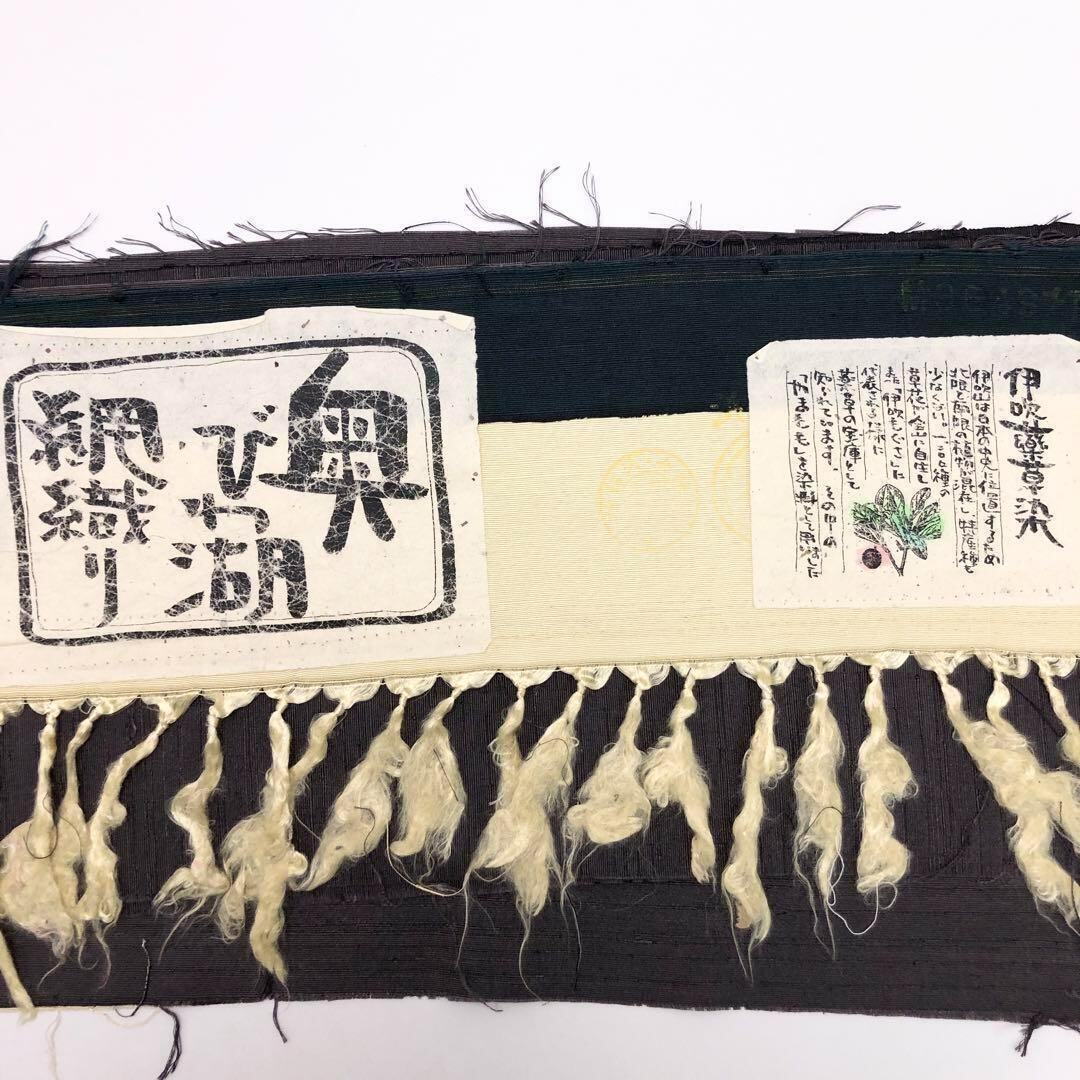 奥
びわ湖
網織り
伊吹藥草染
伊吹山は日本の中央に位置するため
北限と南限の植物が混在し、特産種も
少なくない。
草花が全山に自生し
また、伊吹もぐさに
代表される様に
薬草の宝庫として
知られています。その中の
「やまもも」を染料として用いました